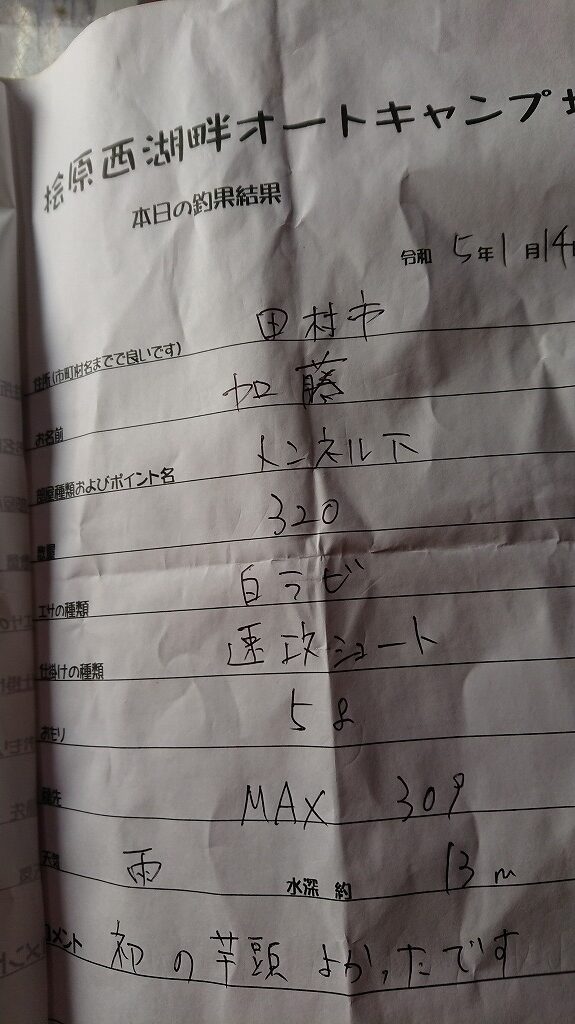 桧原西湖畔オートキャンプ場
本日の釣果結果
令和 5年1月14日
住所(市町村名までで良いです) 田村市
お名前 加藤
部屋種類およびポイント名 トンネル下
数量 320
エサの種類 白ラビ
仕掛けの種類 速攻ショート
おもり 5g
穂先 MAX 309
天気 雨 水深 約 13m
コメント 初の芋頭よかったです